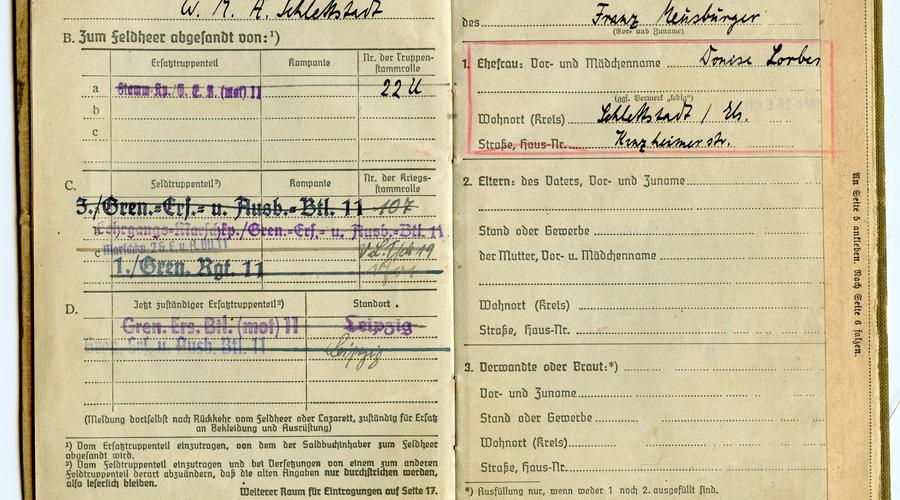 W. M. A. Schlettstadt
B. Zum Feldheer abgesandt von:¹)
Ersatztruppenteil
Kompanie
Nr. der Truppen-
stammrolle
a
Stamm-Kp./G. E. B. (mot) 11
22 U
b
c
C.
Feldtruppenteil²)
Kompanie
Nr. der Kriegs-
stammrolle
3./Gren.-Ers.- u. Ausb.-Btl. 11
107
Lehrgangs-Marschkp./Gren.-Ers.- u. Ausb.-Btl. 11
Marschkp.
c
1./Gren. Rgt. 11
D.
Jetzt zuständiger Ersatztruppenteil²)
Standort
Gren. Ers. Btl. (mot) 11
Leipzig
Gren. Ers. u. Ausb. Btl. 11
Leipzig
(Meldung dortselbst nach Rückkehr vom Feldheer oder Lazarett, zuständig für Ersatz
an Bekleidung und Ausrüstung)
¹) Vom Ersatztruppenteil einzutragen, von dem der Soldbuchinhaber zum Feldheer
abgesandt wird.
²) Vom Feldtruppenteil einzutragen und bei Versetzungen von einem zum anderen
Feldtruppenteil derart abzuändern, daß die alten Angaben nur durchstrichen werden,
also leserlich bleiben.
Weiterer Raum für Eintragungen auf Seite 17.
des
Franz Meusburger
(Vor- und Zuname)
1. Ehefrau: Vor- und Mädchenname
Denise Lorber
(ggf. Vermerk „ledig")
Wohnort (Kreis)
Schlettstadt / Els.
Straße, Haus-Nr.
Kinzheimerstr.
2. Eltern: des Vaters, Vor- und Zuname
Stand oder Gewerbe
der Mutter, Vor- u. Mädchenname
Wohnort (Kreis)
Straße, Haus-Nr.
3. Verwandte oder Braut:*)
Vor- und Zuname
Stand oder Gewerbe
Wohnort (Kreis)
Straße, Haus-Nr.
*) Ausfüllung nur, wenn weder 1 noch 2. ausgefüllt sind.
An Seite 5 ankleben. Nach Seite 6 falzen.